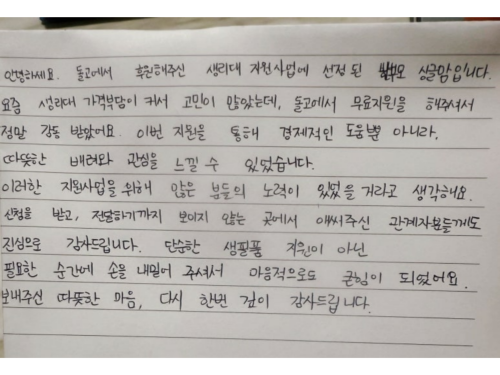 안녕하세요. 돌고에서 후원해주신 생리대 지원사업에 선정 된 싱글맘입니다.
요즘 생리대 가격부담이 커서 고민이 많았는데, 돌고에서 무료지원을 해주셔서
정말 감동 받았어요. 이번 지원을 통해 경제적인 도움뿐 아니라.
따뜻한 배려와 관심을 느낄 수 있었습니다.
이러한 지원사업을 위해 많은 분들의 노력이 있었을 거라고 생각해요.
신청을 받고, 전달하기까지 보이지 않는 곳에서 애써주신 관계자분들께도
진심으로 감사드립니다. 단순한 생필품 지원이 아닌
필요한 순간에 손을 내밀어 주셔서 마음적으로도 큰힘이 되었어요.
보내주신 따뜻한 마음, 다시 한번 깊이 감사드립니다.